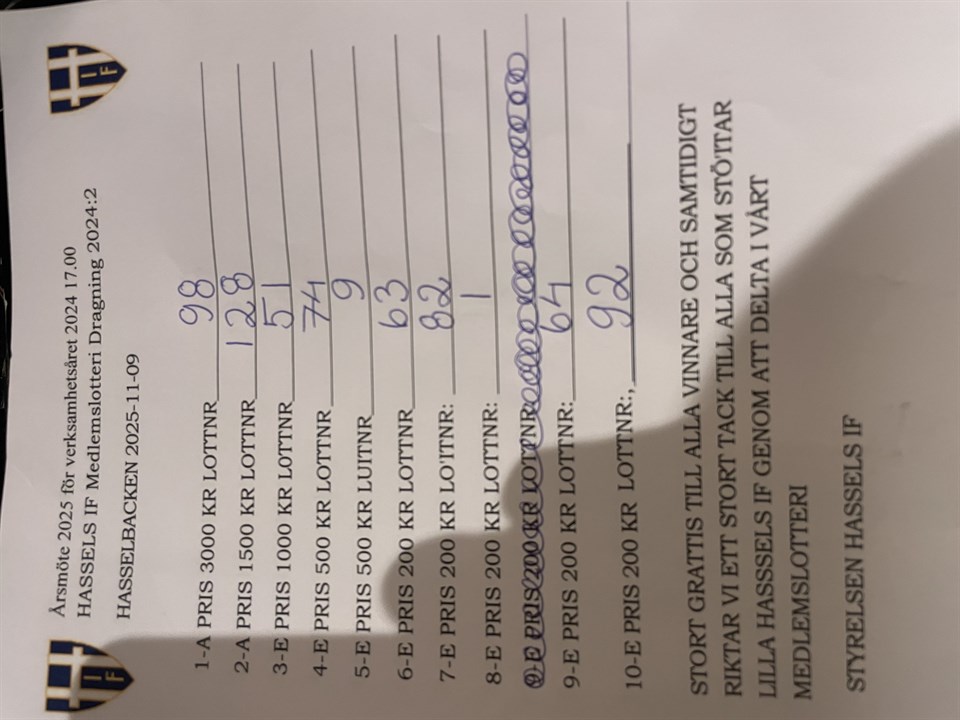 Årsmöte 2025 för verksamhetsåret 2024 17.00
HASSELS IF Medlemslotteri Dragning 2024:2
HASSELBACKEN 2025-11-09
1-A PRIS 3000 KR LOTTNR 98
2-A PRIS 1500 KR LOTTNR 128
3-E PRIS 1000 KR LOTTNR 51
4-E PRIS 500 KR LOTTNR 74
5-E PRIS 500 KR LUITNR 9
6-E PRIS 200 KR LOTTNR 63
7-E PRIS 200 KR LOTTNR: 82
8-E PRIS 200 KR LOTTNR: 1
9-E PRIS 200 KR LOTTNR
9-E PRIS 200 KR LOTTNR: 64
10-E PRIS 200 KR LOTTNR:, 92
STORT GRATTIS TILL ALLA VINNARE OCH SAMTIDIGT
RIKTAR VI ETT STORT TACK TILL ALLA SOM STÖTTAR
LILLA HASSSELS IF GENOM ATT DELTA I VÅRT
MEDLEMSLOTTERI
STYRELSEN HASSELS IF
I F
I F